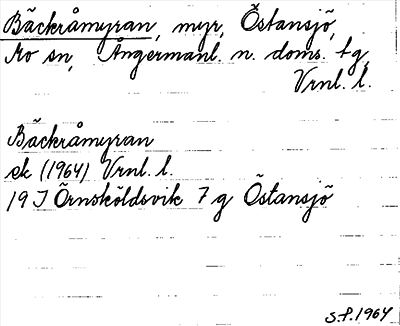 Bäckråmyran, myr, Östansjö,
Mo sn, Ångermanl. n. doms. tg,
Vrnl. l.
Bäckråmyran
ek (1964) Vrnl. l.
19 J Örnsköldsvik 7 g Östansjö
S.P. 1964